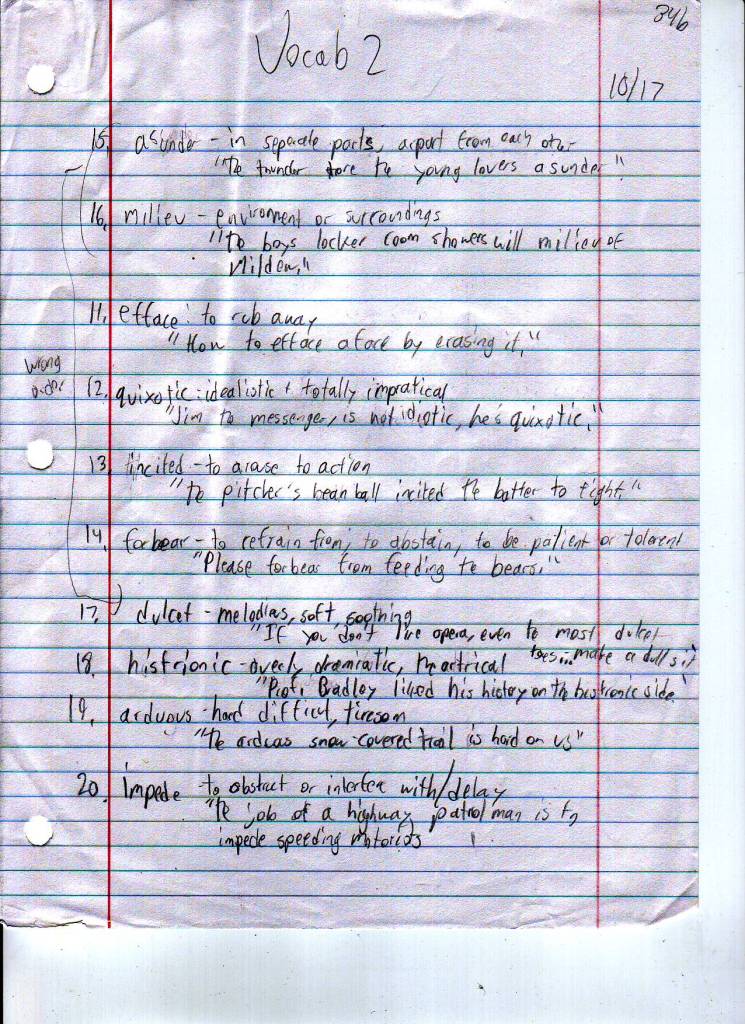 34b
Vocab 2
10/17
15. asunder - in seperate parts, arpart from each other
"The thunder tore the young lovers asunder."
16. milieu - environment or surroundings
"The boys locker room showers will milieu of
Mildew."
11. efface: to rub away
"How to efface a face by erasing it,"
wrong
order
12. quixotic: idealistic + totally impratical
"Jim the messenger, is not idiotic, he's quixotic."
13. incited - to arause to action
"The pitcher's bean ball incited the batter to fight."
14. forbear - to refrain from; to abstain, to be patient or tolerent
"Please forbear from feeding the bears."
17. dulcet - melodias, soft, soothing
"If you don't like opera, even the most dulcet
... make a dull sit
18. histrionic - overly dramiatic, theartrical
"Prof. Bradley liked his history on the histronic side"
19. arduous - hard difficul, tiresom
"The arduas snow-covered trail is hard on us"
20. Impede - to obstract or interfer with/delay
"The job of a highway patrol man is to
impede speeding motorists